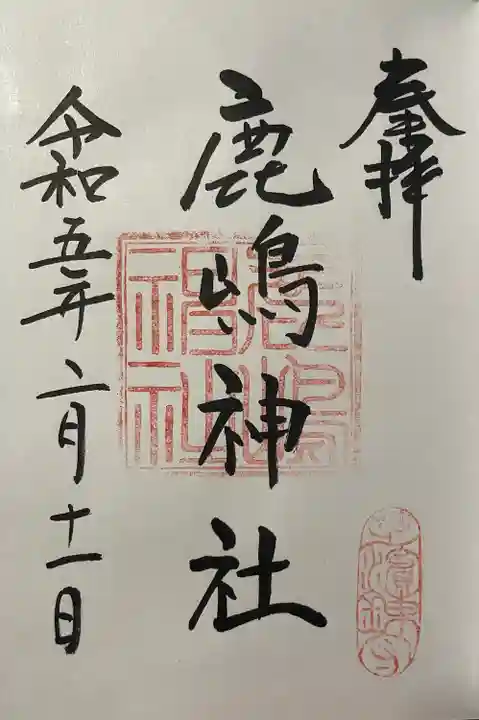 奉拝
鹿嶋神社
令和五年六月十一日
鹿嶋神社